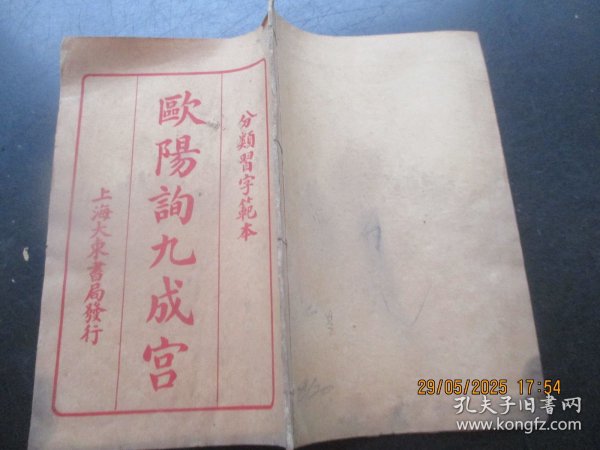 分類習字範本
歐陽詢九成宮
上海大東書局發行
29/05/2025 17:54
孔夫子旧书网
www.kongfz.com